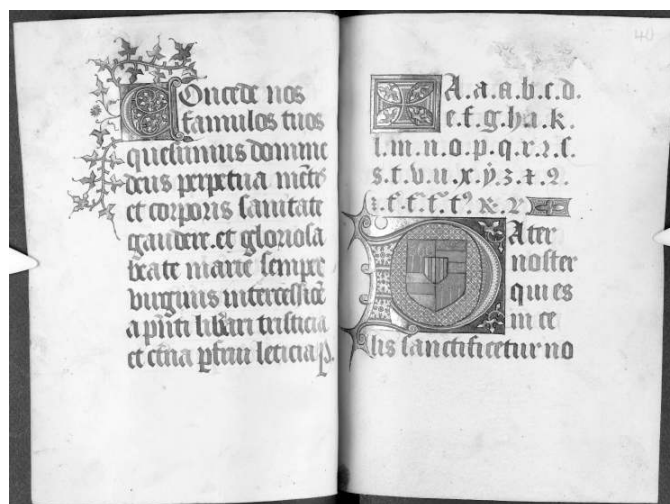 Concede nos
famulos tuos
quesumus domine
deus perpetua mētis
et corporis sanitate
gaudere. et gloriosa
beate marie semper
virginis intercessiōe
a pñti libari tristicia
et etña pfrui leticia
40
A.a.a.b.c.d.
e.f.g.h.a.k.
l.m.n.o.p.q.r.ꝛ.ſ.
s.t.v.u.x.ẏ.z.
Pater
noster
qui es
in ce
lis sanctificetur no